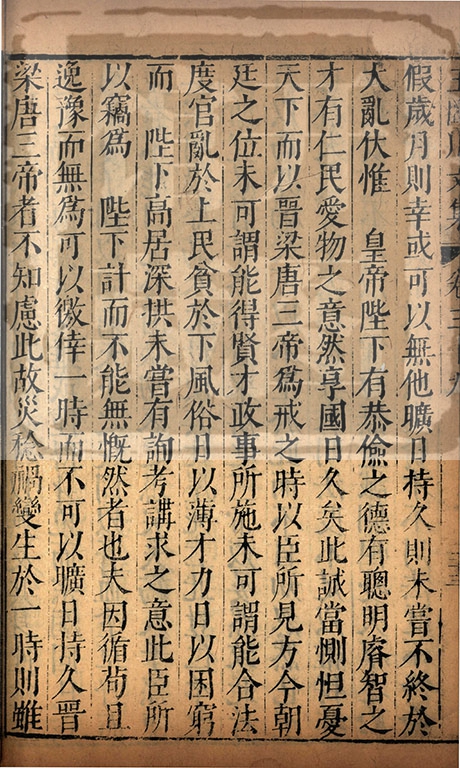 假歲月則幸或可以無他曠日持久則未嘗不終於
大亂伏惟 皇帝陛下有恭儉之德有聰明睿智之
才有仁民愛物之意然享國日久矣此誠當惻怛憂
天下而以晉梁唐三帝爲戒之時以臣所見方今朝
廷之位未可謂能得賢才政事所施未可謂能合法
度官亂於上民貧於下風俗日以薄才力日以困窮
而 陛下高居深拱未嘗有詢考講求之意此臣所
以竊爲 陛下計而不能無慨然者也夫因循苟且
逸豫而無爲可以徼倖一時而不可以曠日持久晉
梁唐三帝者不知慮此故災稔禍變生於一時則雖